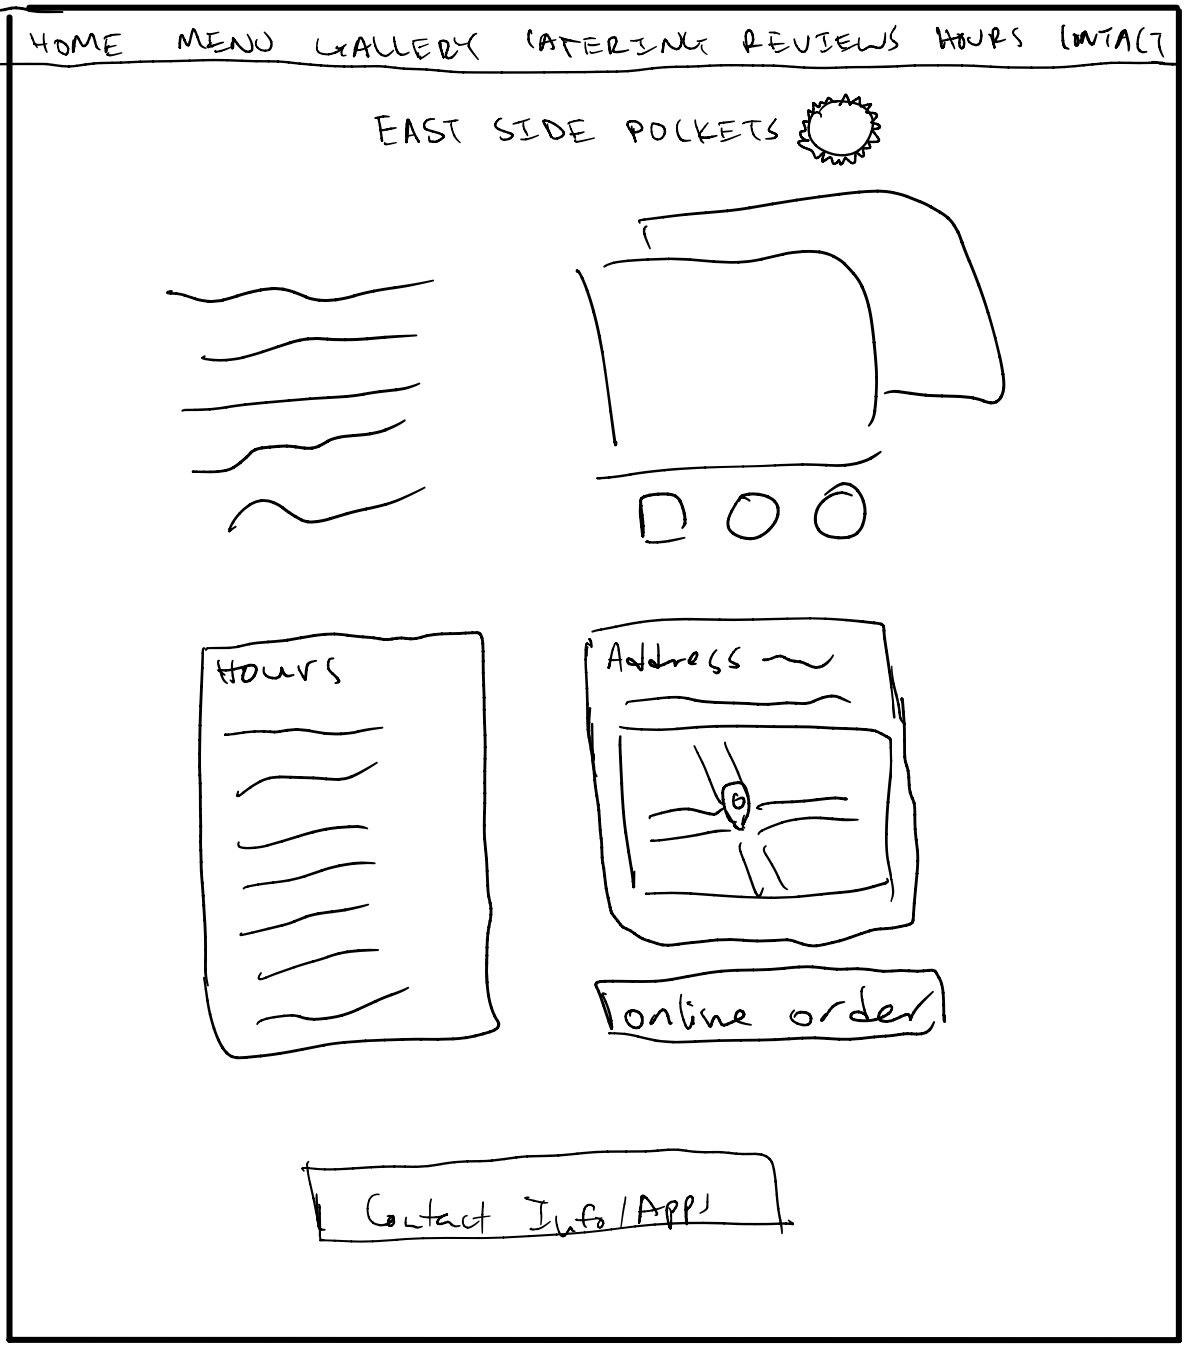 HOME MENU GALLERY CATERING REVIEWS HOURS CONTACT
EAST SIDE POCKETS
Hours
Address
online order
Contact Info/Apps